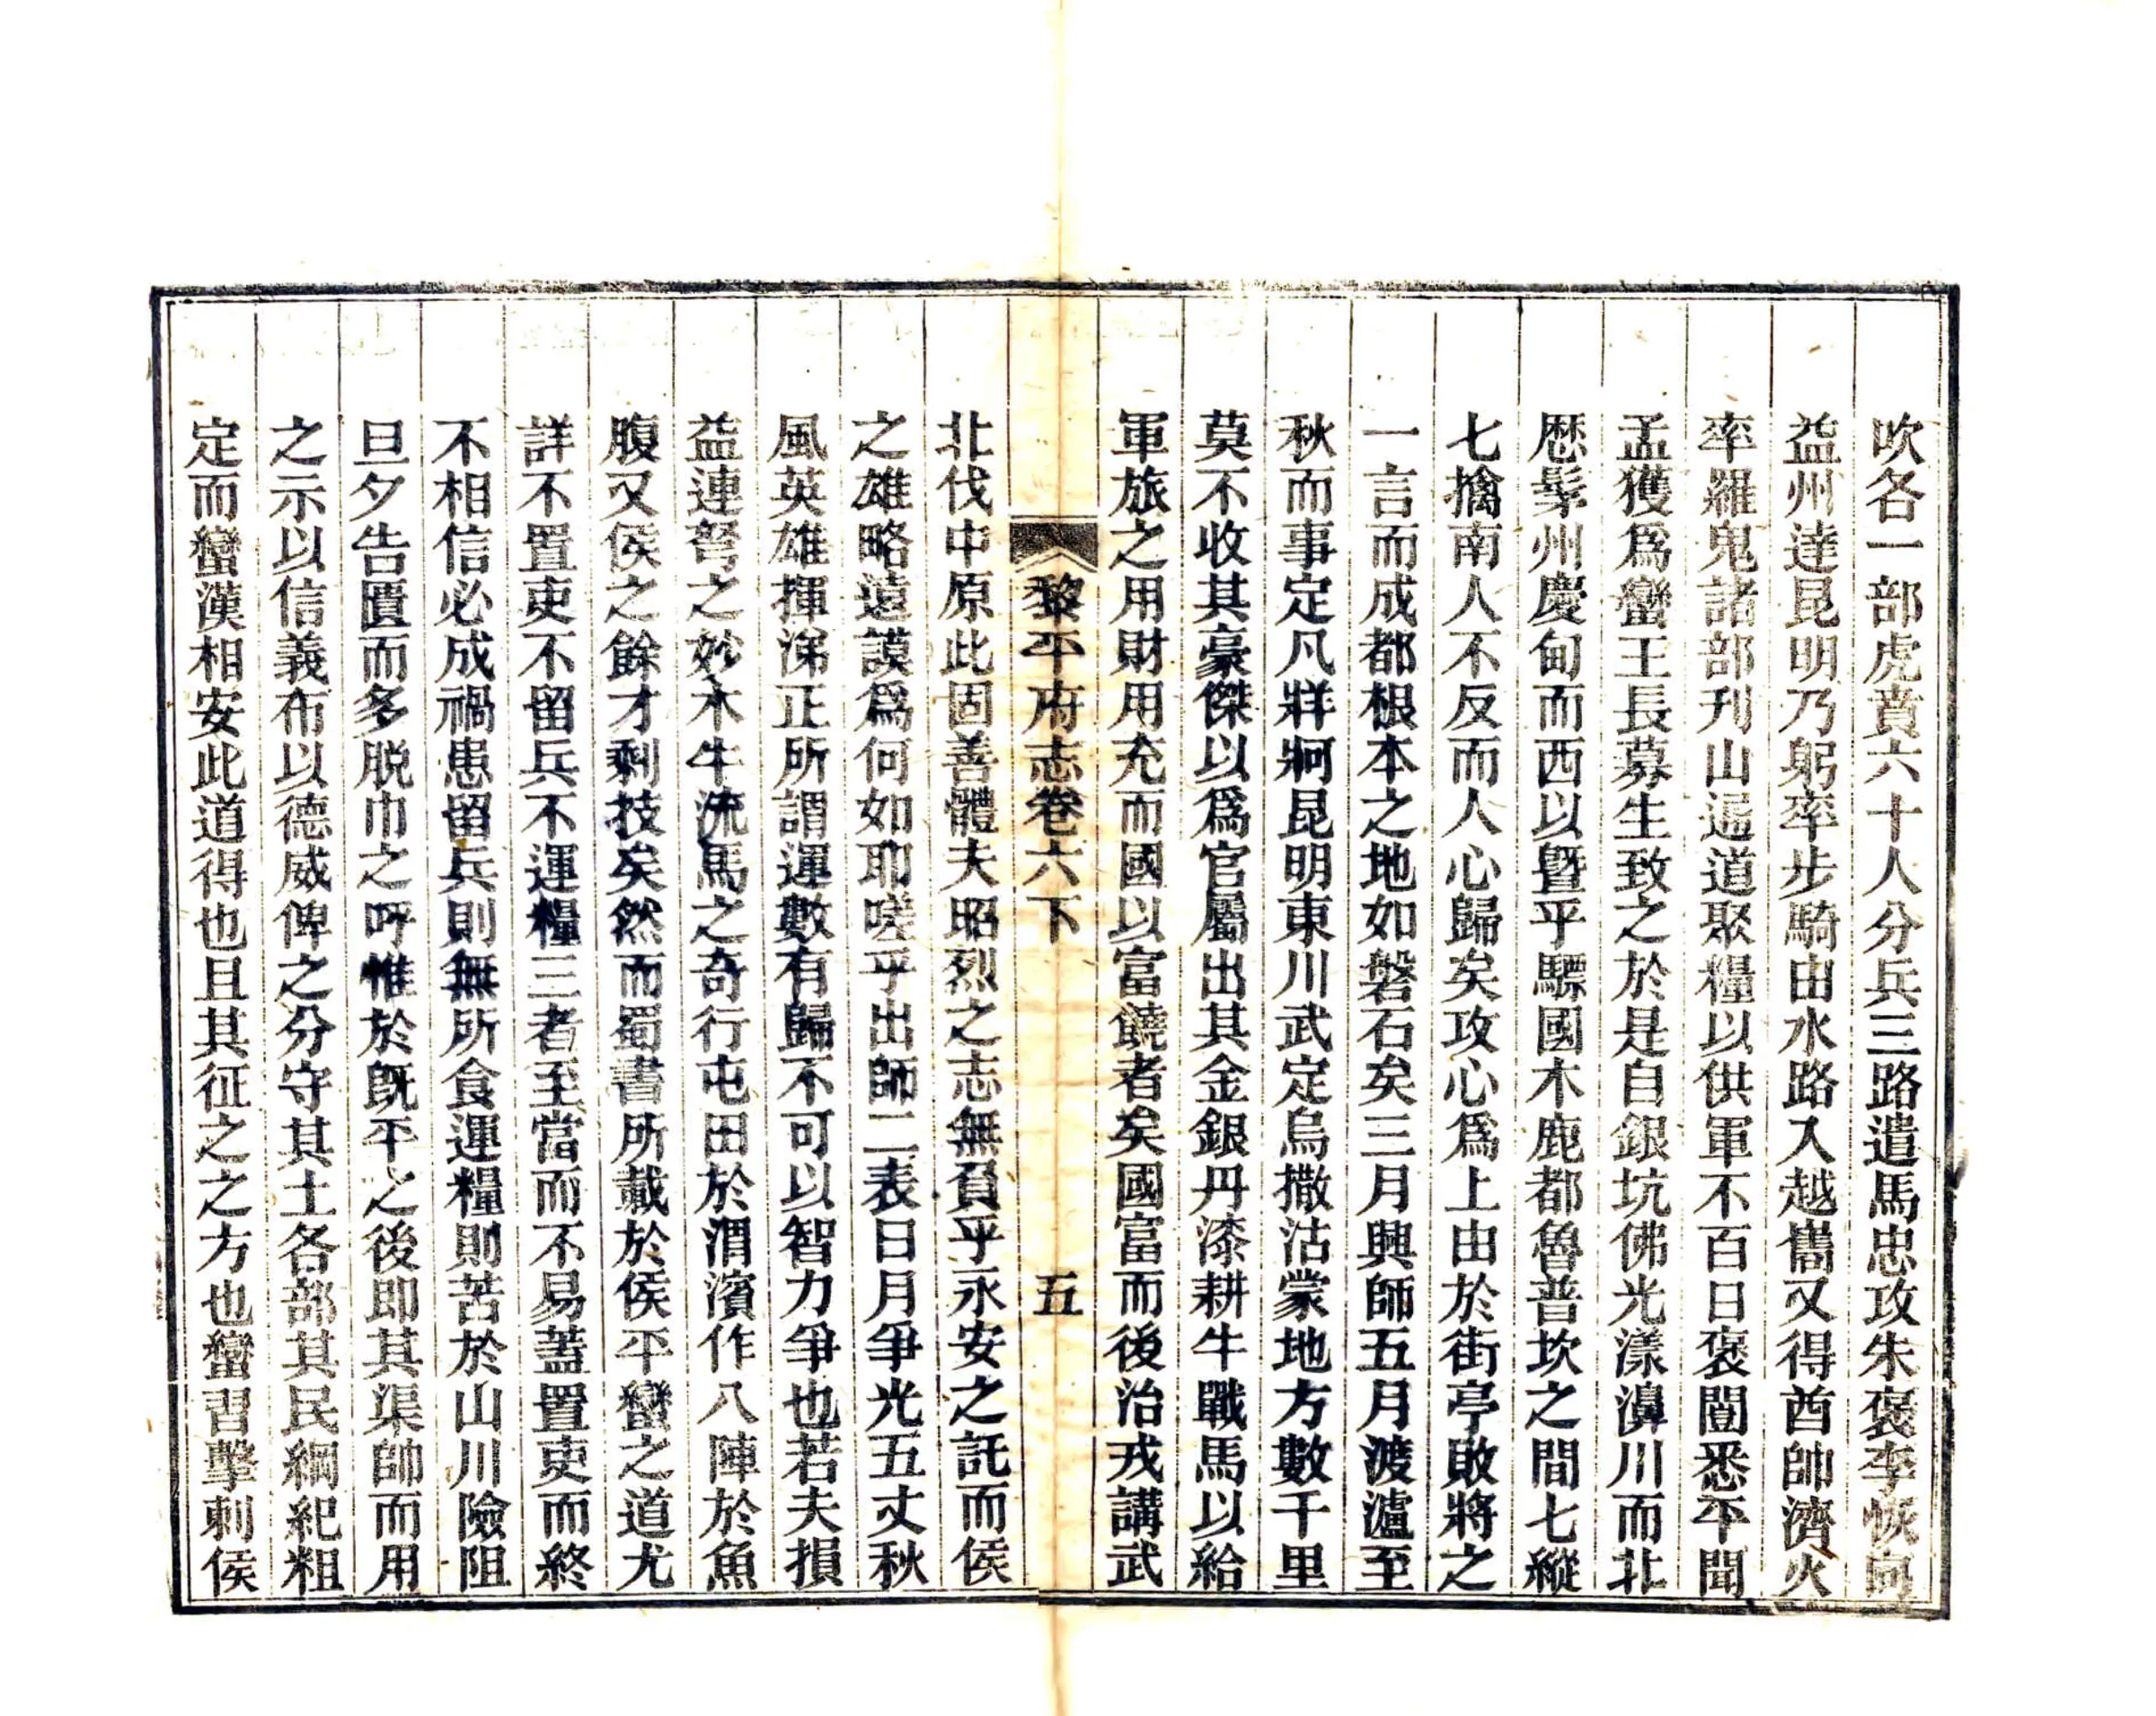 吹各一部虎賁六十人分兵三路遣馬忠攻朱褒李恢向
益州達昆明乃躬率步騎由水路入越巂又得酋帥濟火
率羅鬼諸部刋山通道聚糧以供軍不百日褒闓悉平聞
孟獲爲蠻王長募生致之於是自銀坑佛光漾濞川而北
歷髳州慶甸而西以曁乎驃國木鹿都魯普坎之間七縱
七擒南人不反而人心歸矣攻心爲上由於街亭敗將之
一言而成都根本之地如磐石矣三月興師五月渡瀘至
秋而事定凡牂牁昆明東川武定烏撒沽蒙地方數千里
莫不收其豪傑以爲官屬出其金銀丹漆耕牛戰馬以給
軍旅之用財用充而國以富饒者矣國富而後治戎講武
黎平府志卷六下 五
北伐中原此固善體夫昭烈之志無負乎永安之託而侯
之雄略遠謨爲何如耶嗟乎出師二表日月爭光五丈秋
風英雄揮涕正所謂運數有歸不可以智力爭也若夫損
益連弩之妙木牛流馬之奇行屯田於渭濱作八陣於魚
腹又侯之餘才剩技矣然而蜀書所載於侯平蠻之道尤
詳不置吏不留兵不運糧三者至當而不易蓋置吏而終
不相信必成禍患留兵則無所食運糧則苦於山川險阻
旦夕告匱而多脱巾之呼惟於旣平之後即其渠帥而用
之示以信義布以德威俾之分守其土各部其民綱紀粗
定而蠻漢相安此道得也且其征之之方也蠻習擊刺侯